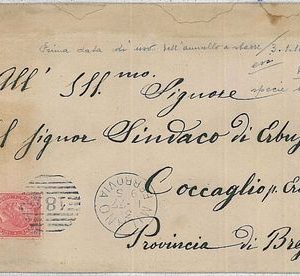 Prima data di uso dell'annullo a sbarre 3.1.18
All' Ill.mo.
Signore
l signor Sindaco di Erbus
Coccaglio p. Er
Provincia di Bre
18
FERROVIA